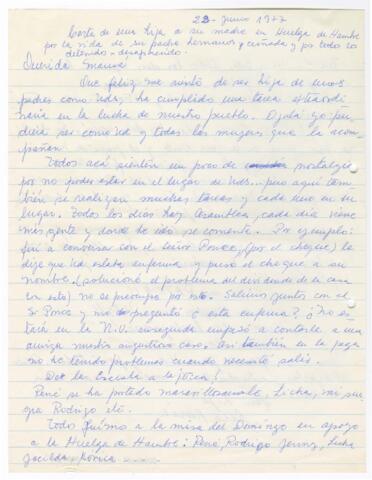 22 - Junio 1977
Carta de una hija a su madre en Huelga de Hambre
por la vida de su padre hermanos y cuñada y por todos los
detenidos - desaparecidos.
Querida Mamá
Que feliz me siento de ser hija de unos
padres como Uds, ha cumplido una tarea extraordi
naria en la lucha de nuestro pueblo. Ojalá yo pu
diera ser como Ud y todas las mujeres que la acom
pañan.
Todos acá sienten un poco de nostalgia
por no poder estar en el lugar de Uds... pero aquí tam
bién se realizan muchas tareas y cada uno en su
lugar. Todos los días hay Asamblea, cada día viene
más gente y donde he ido se comenta. Por ejemplo:
fui a conversar con el señor Ponce, (por el cheque) le
dije que Ud estaba enferma y puso el cheque a su
nombre. (solucioné el problema del dividendo de la casa
con esto) no se preocupe por esto. Salimos juntos con el
Sr Ponce y me preguntó ¿ está enferma? ¿ no es
tará en la N.U. enseguida empezó a contarle a una
amiga nuestro angustioso caso. Así también en la pega
no he tenido problemas cuando necesité salir.
René se ha portado maravilloso, Licha, mi sue
gra Rodrigo etc.
Todos fuimos a la misa del Domingo en apoyo
a la Huelga de Hambre: René, Rodrigo Jenny, Licha